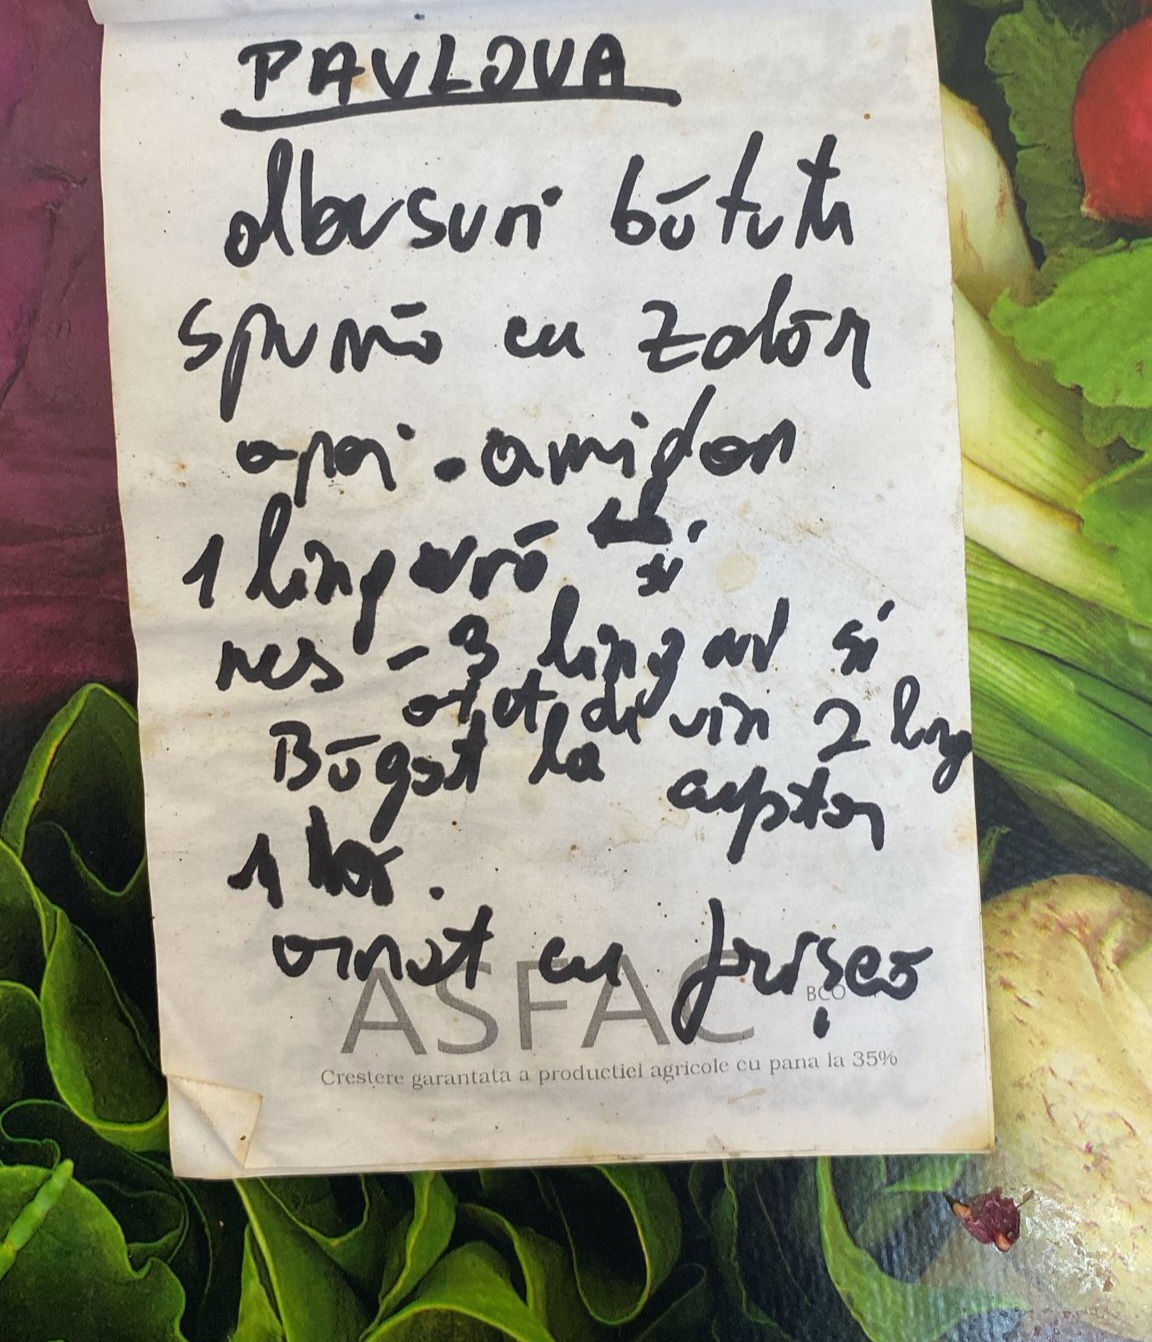 PAVLOVA
albusuri bătute
spumă cu zahăr
apoi - amidon
1 lingură și
nes - 3 lingur și
oțet de vin 2 ling
Băgat la cuptor
1 h.
ornat cu frișcă
ASFAC BCO
Crestere garantata a productiei agricole cu pana la 35%